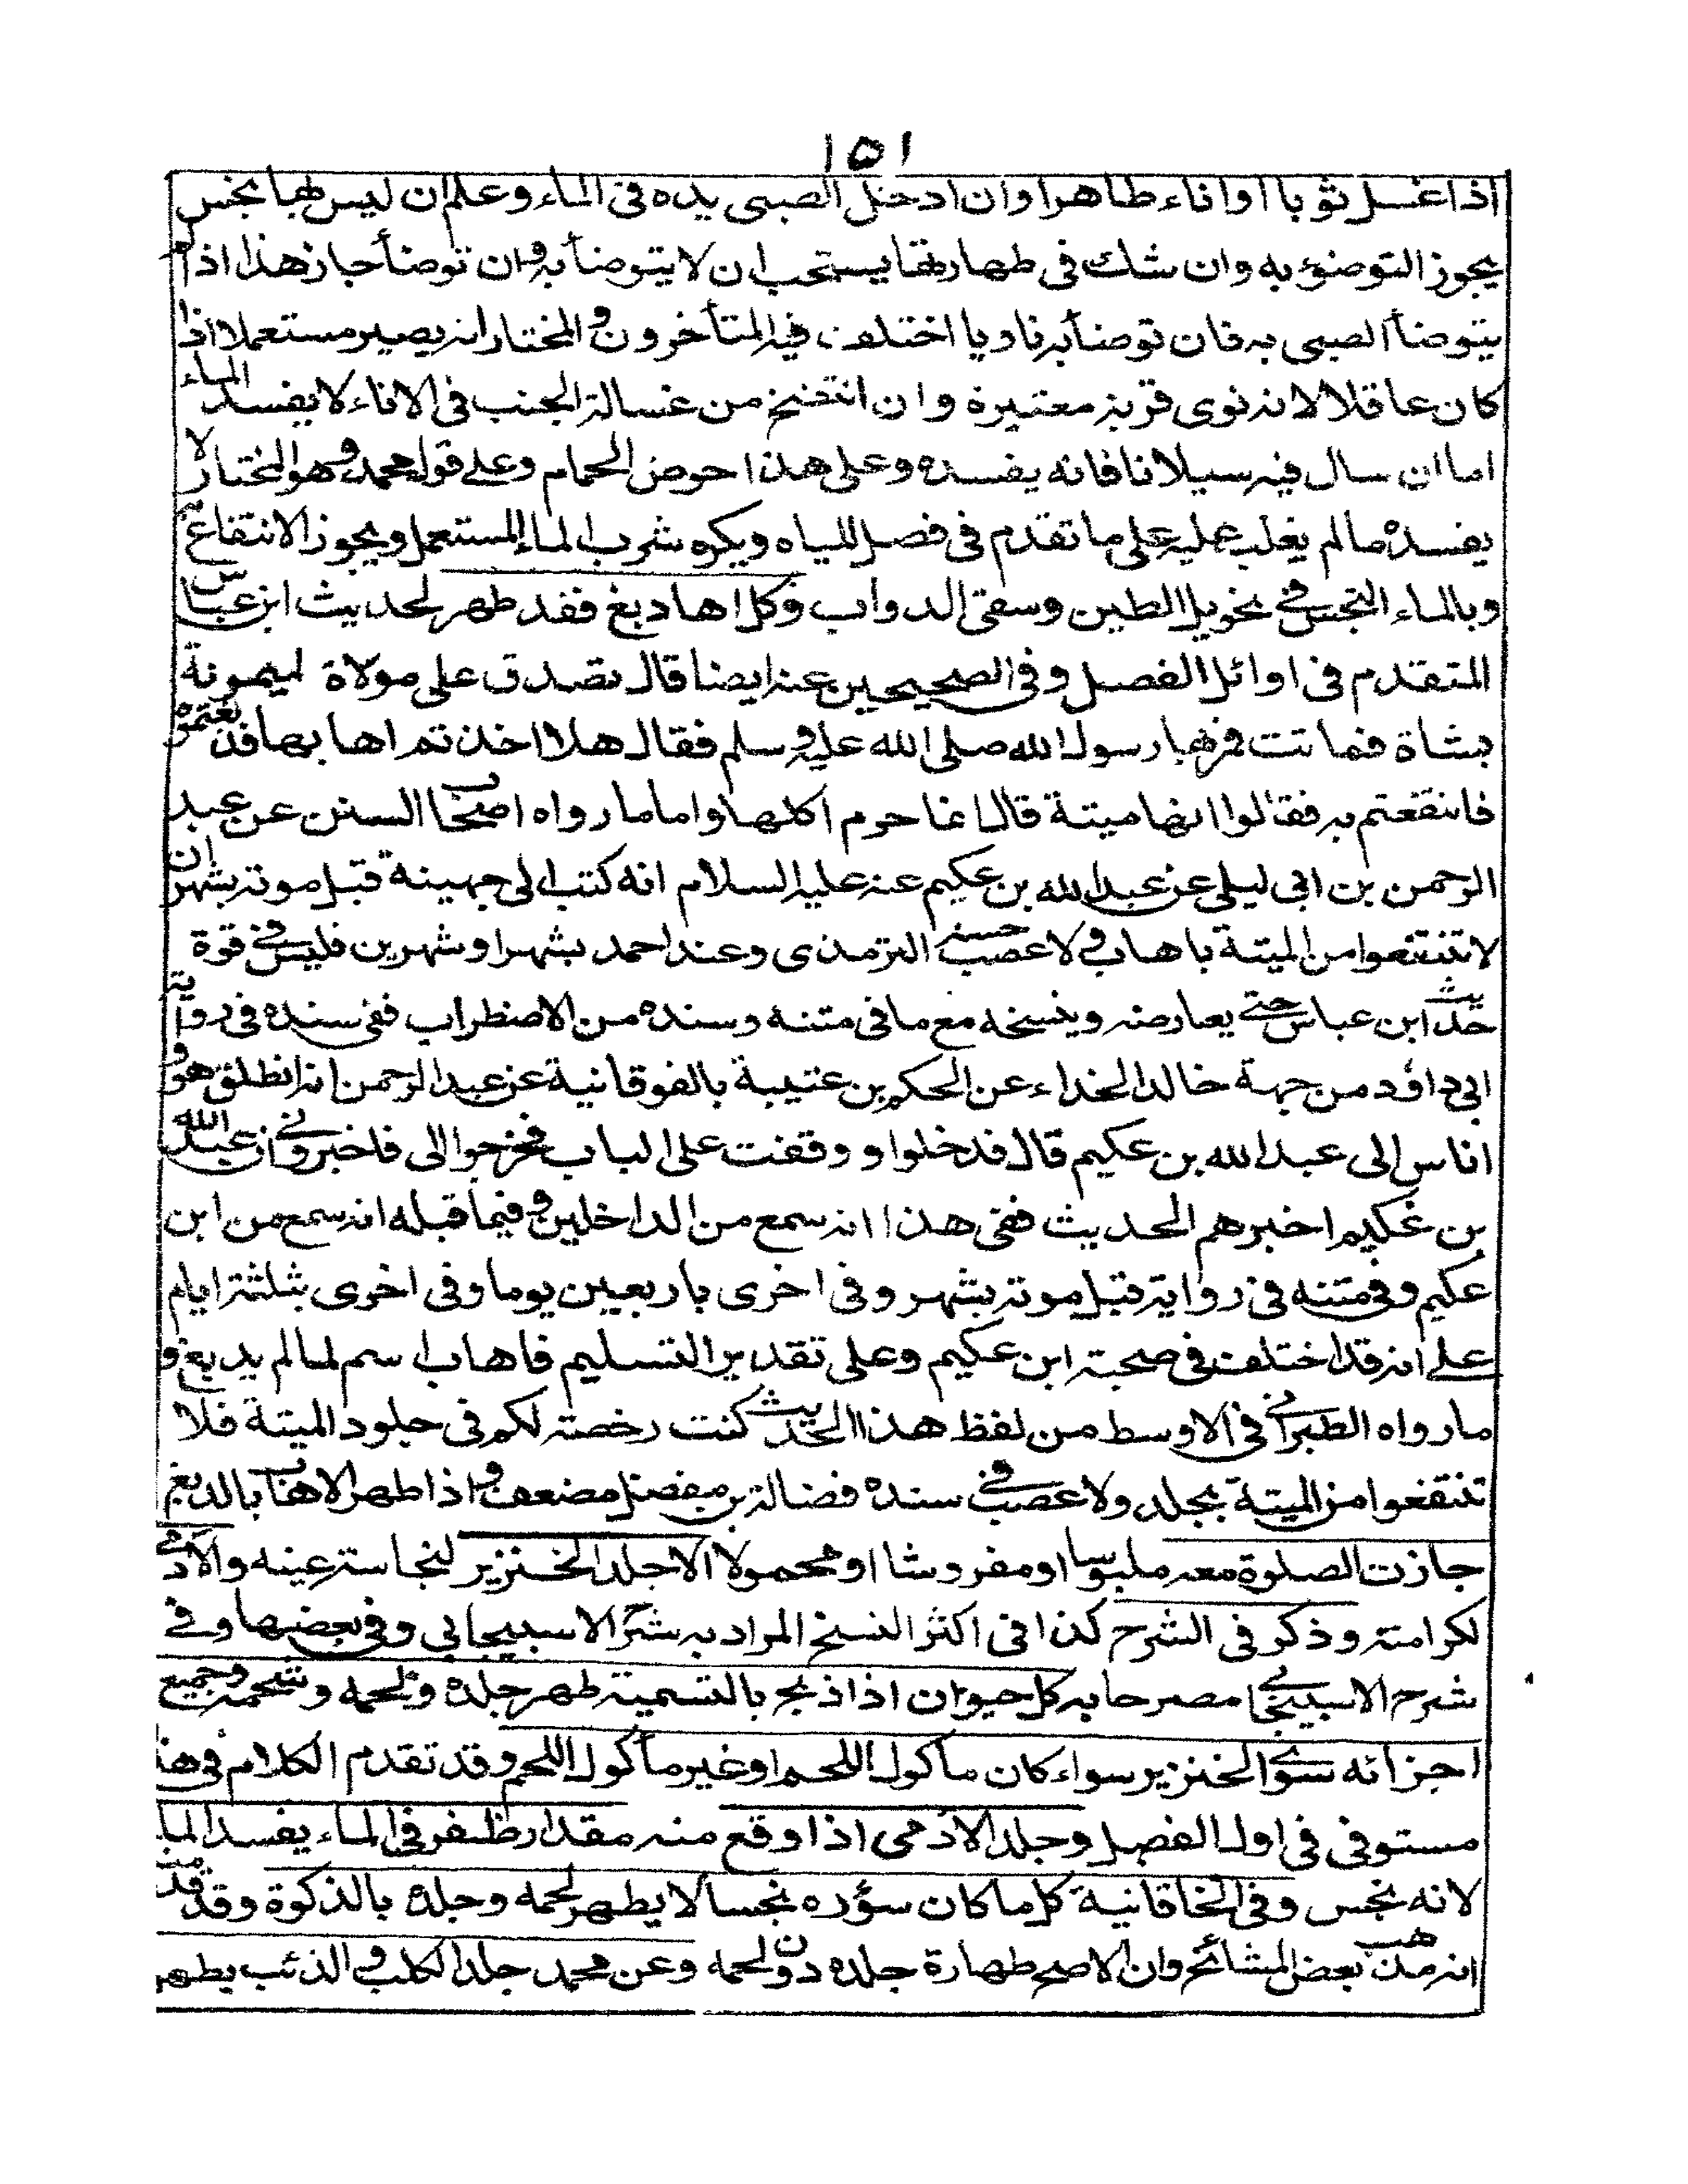 ١٥١
اذا غسل ثوبا او اناء طاهرا وان ادخل الصبى يده فى الماء وعلم ان ليس بها نجس
يجوز التوضؤ به وان شك فى طهارتها يستحب ان لا يتوضأ به وان توضأ جاز هذا اذا لم
يتوضأ الصبى به فان توضأ به ناويا اختلف فيه المتأخرون والمختار انه يصير مستعملا اذا
كان عاقلا لانه نوى قربة معتبرة وان انتضح من غسالة الجنب فى الاناء لا يفسد الماء
اما ان سال فيه سيلانا فانه يفسده وعلى هذا حوض الحمام وعلى قول محمد وهو المختار لا
يفسده ما لم يغلب عليه على ما تقدم فى فصل المياه ويكره شرب الماء المستعمل ويجوز الانتفاع به
وبالماء النجس فى نحو بل الطين وسقى الدواب وكل اهاب دبغ فقد طهر لحديث ابن عباس
المتقدم فى اوائل الفصل وفى الصحيحين عنه ايضا قال تصدق على مولاة لميمونة
بشاة فماتت فمر بها رسول الله صلى الله عليه وسلم فقال هلا اخذتم اهابها فدبغتموه
فانتفعتم به فقالوا انها ميتة قال انما حرم اكلها واما ما رواه اصحاب السنن عن عبد
الرحمن بن ابى ليلى عن عبد الله بن عكيم عنه عليه السلام انه كتب الى جهينة قبل موته بشهر ان
لا تنتفعوا من الميتة باهاب ولا عصب حسنه الترمذى وعند احمد بشهر او شهرين فليس فى قوة
حديث ابن عباس حتى يعارضه وينسخه مع ما فى متنه وسنده من الاضطراب ففى سنده فى رواية
ابى داؤد من جهة خالد الحذاء عن الحكم بن عتيبة بالفوقانية عن عبد الرحمن انه انطلق هو و
اناس الى عبد الله بن عكيم قال فدخلوا ووقفت على الباب فخرجوا الى فاخبرونى ان عبد الله
بن عكيم اخبرهم الحديث ففى هذا انه سمع من الداخلين وفيما قبله انه سمع من ابن
عكيم وفى متنه فى رواية قبل موته بشهر وفى اخرى باربعين يوما وفى اخرى بثلثة ايام
على انه قد اختلف فى صحبة ابن عكيم وعلى تقدير التسليم فاهاب اسم لما لم يدبغ و
ما رواه الطبرانى فى الاوسط من لفظ هذا الحديث كنت رخصت لكم فى جلود الميتة فلا
تنتفعوا من الميتة بجلد ولا عصب فى سنده فضالة بن مفضل مضعف واذا طهر الاهاب بالدبغ
جازت الصلوة معه ملبوسا او مفروشا او محمولا الا جلد الخنزير لنجاسة عينه والآدمى
لكرامته وذكر فى الشرح كذا فى اكثر النسخ المراد به شرح الاسبيجابى وفى بعضها وفى
شرح الاسبيجابى مصرحا به كل حيوان اذا ذبح بالتسمية طهر جلده ولحمه وشحمه وجميع
اجزائه سوى الخنزير سواء كان مأكول اللحم او غير مأكول اللحم وقد تقدم الكلام فى هذا
مستوفى فى اول الفصل وجلد الآدمى اذا وقع منه مقدار ظفر فى الماء يفسد الماء
لانه نجس وفى الخاقانية كل ما كان سؤره نجسا لا يطهر لحمه وجلده بالذكوة وقد قدمنا
انه مذهب بعض المشائخ وان الاصح طهارة جلده دون لحمه وعن محمد جلد الكلب والذئب يطهر